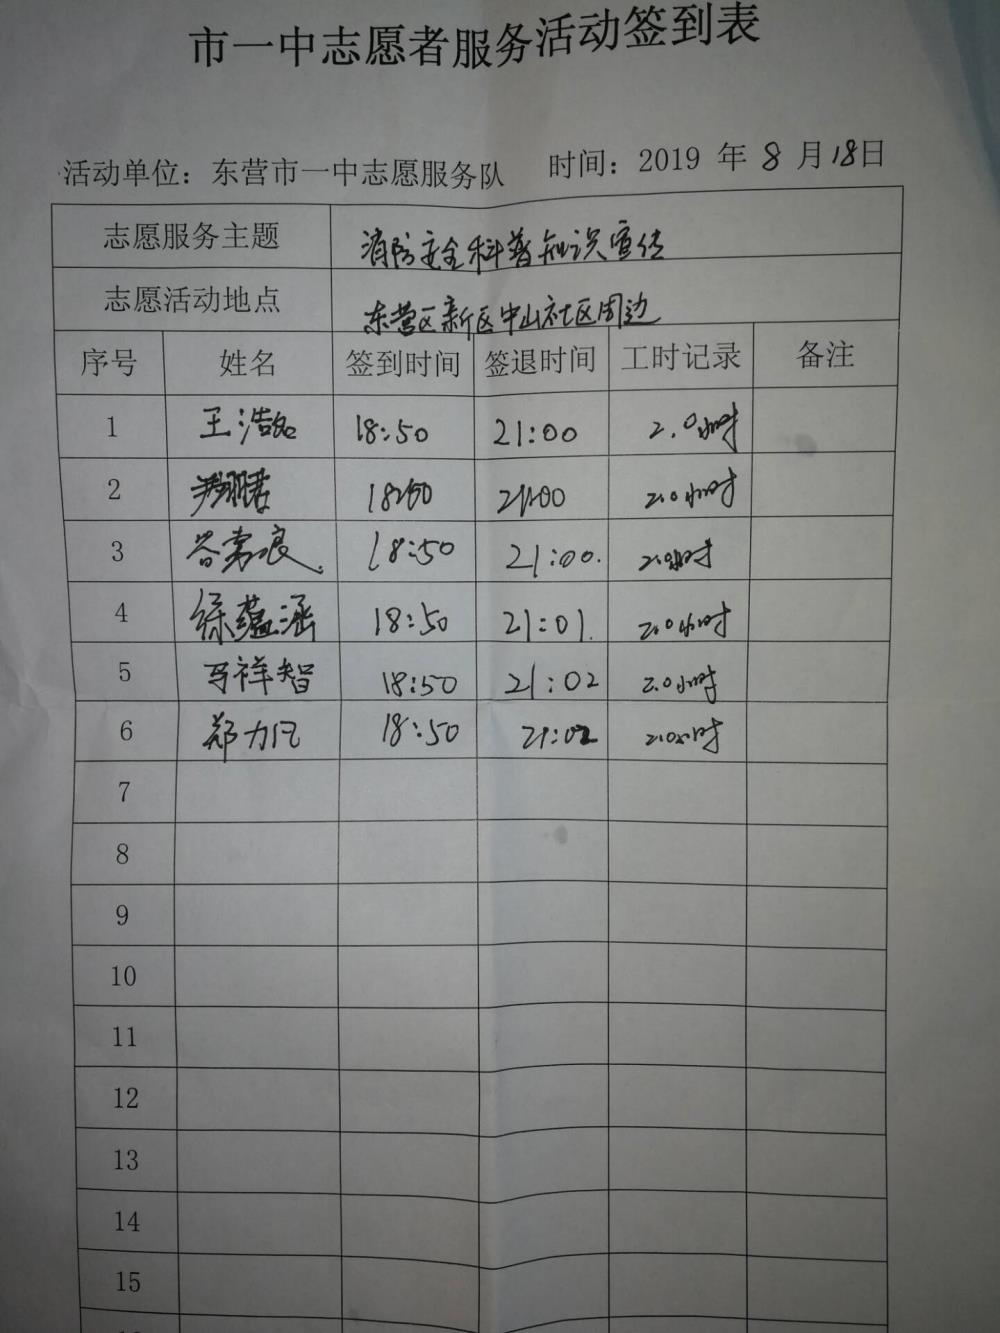 市一中志愿者服务活动签到表
活动单位：东营市一中志愿服务队 时间：2019 年 8 月 18日
志愿服务主题 消防安全科普知识宣传
志愿活动地点 东营区新区中山社区周边
序号 姓名 签到时间 签退时间 工时记录 备注
1 王浩铭 18:50 21:00 2.0小时
2 18:50 21:00 2.0小时
3 18:50 21:00. 2.0小时
4 徐蕴涵 18:50 21:01. 2.0小时
5 马祥智 18:50 21:02 2.0小时
6 郑力凡 18:50 21:02 2.0小时
7
8
9
10
11
12
13
14
15